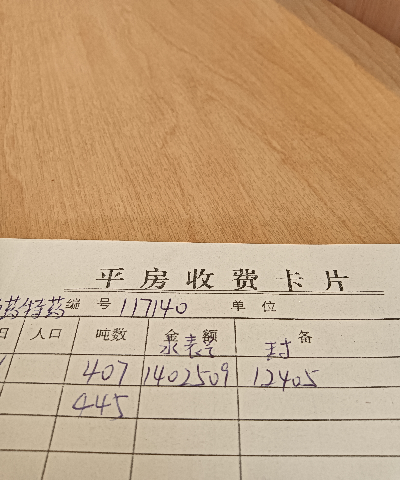 平房收费卡片
药特药编号 117140 单位
日 人口 吨数 金额 备
水表号 封
407 1402509 12405
445